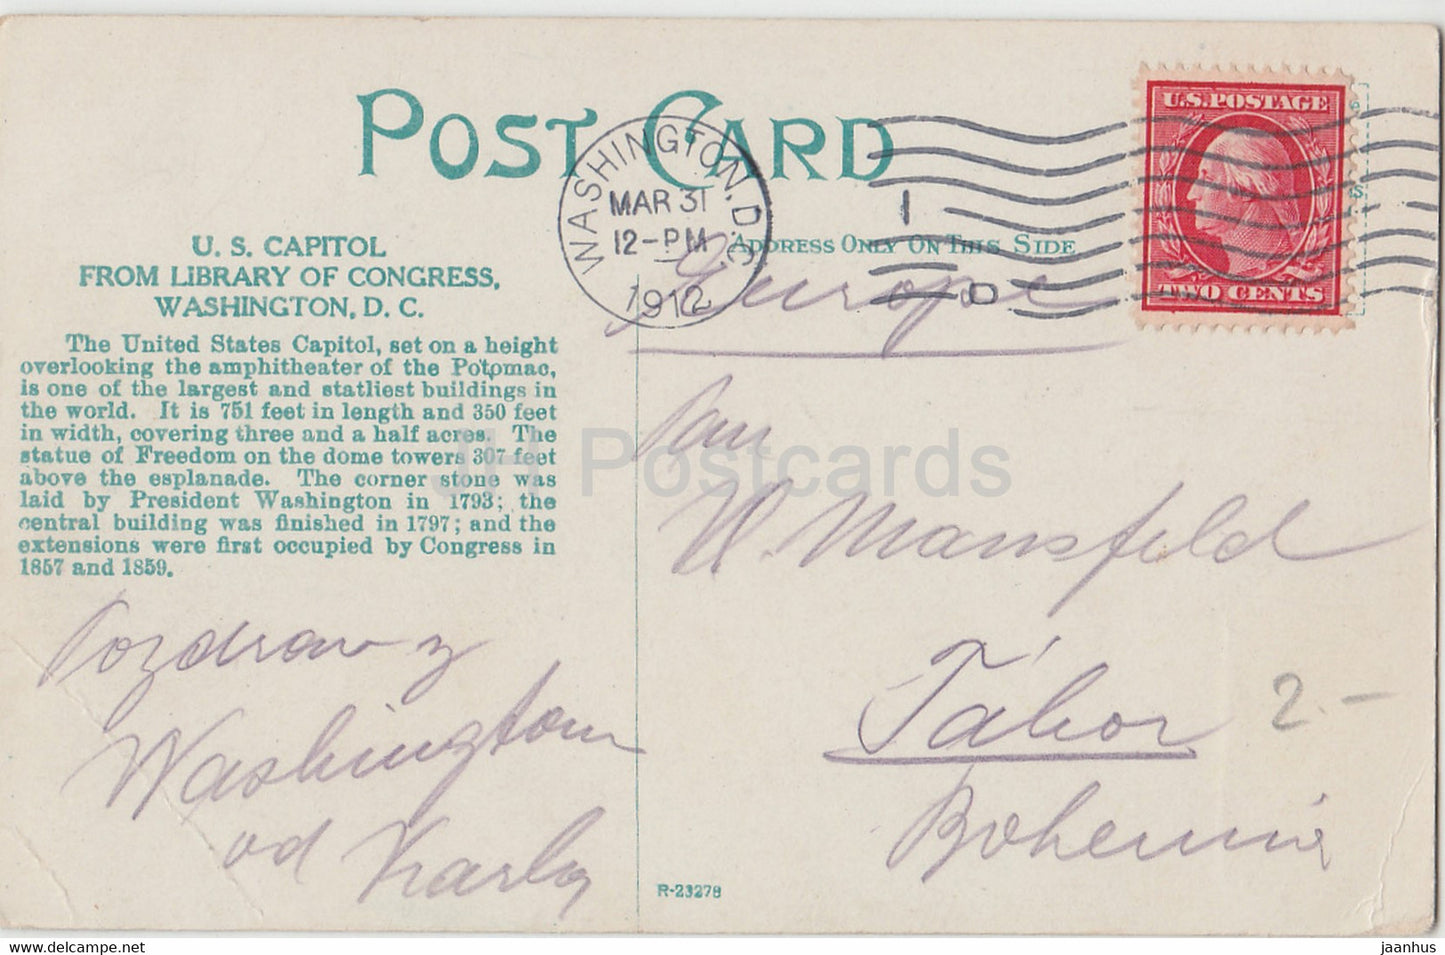 POST CARD
U.S. POSTAGE
TWO CENTS
WASHINGTON, D.C.
MAR 31
12-PM
1912
1
D
ADDRESS ONLY ON THIS SIDE
U. S. CAPITOL
FROM LIBRARY OF CONGRESS,
WASHINGTON, D. C.
The United States Capitol, set on a height
overlooking the amphitheater of the Potomac,
is one of the largest and statliest buildings in
the world. It is 751 feet in length and 350 feet
in width, covering three and a half acres. The
statue of Freedom on the dome towers 307 feet
above the esplanade. The corner stone was
laid by President Washington in 1793; the
central building was finished in 1797; and the
extensions were first occupied by Congress in
1857 and 1859.
Pozdrav z
Washingtonu
od Karla
Europe
Pan
Mansfeld
Tábor
Bohemia
2.-
R-23278
JH Postcards
hippostcard.com
jaanhus